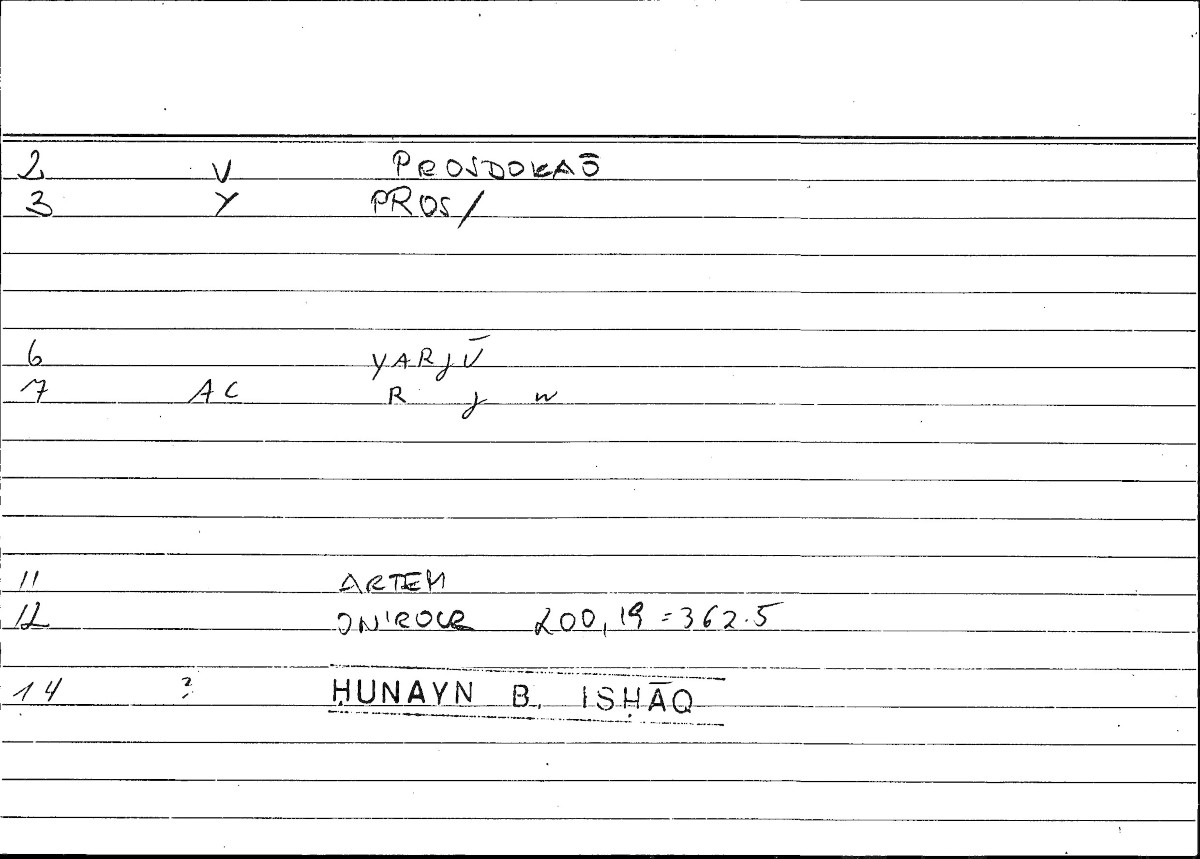 2 V PROSDOKAŌ
3 Y PROS/
6 YARJŪ
7 AC R J W
11 ARTEM
12 ONIROCR 200,19=362.5
14 ? ḤUNAYN B. ISḤĀQ